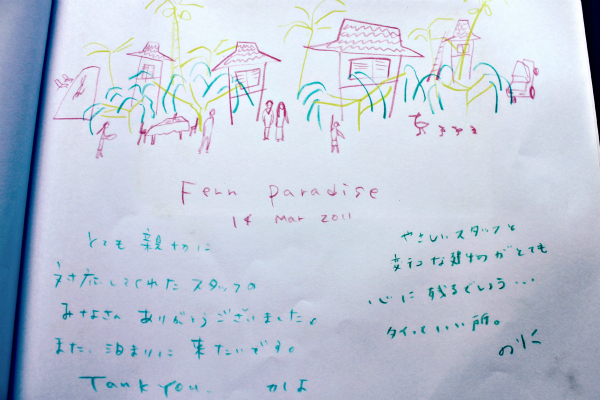 Fern Paradise
14 Mar 2011
とても 親切に
対応してくれた スタッフの
みなさん ありがとうございました。
また、泊まりに 来たいです。
Tank you. かしよ
やさしいスタッフと
変テコな建物がとても
心に 残るでしょう...
タイっていい所。
のりこ